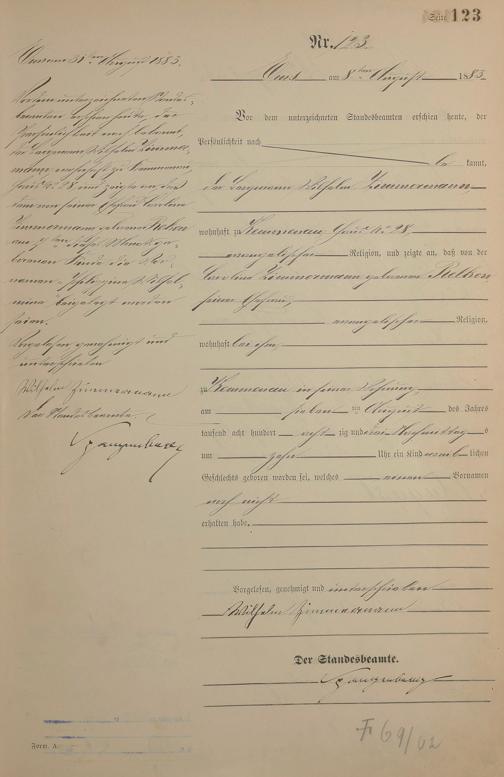 Seite 123
Nr. 123
Ems am 8ten August 1883.
Vor dem unterzeichneten Standesbeamten erschien heute, der
Persönlichkeit nach
be kannt,
der Bergmann Wilhelm Zimmermann
wohnhaft zu Kemmenau Haus No 28
evangelischer Religion, und zeigte an, daß von der
Carolina Zimmermann geborene
seiner Ehefrau,
evangelischer Religion,
wohnhaft bei ihm,
zu Kemmenau in seiner Wohnung,
am sieben ten August des Jahres
tausend acht hundert acht zig und drei Nachmittags
um zehn Uhr ein Kind weib lichen
Geschlechts geboren worden sei, welches einen Vornamen
noch nicht
erhalten habe.
Vorgelesen, genehmigt und unterschrieben
Wilhelm Zimmermann
Der Standesbeamte.
Ems am 31ten August 1883.
Vor dem unterzeichneten Standes-
beamten erschien heute, der
Persönlichkeit nach bekannt,
der Bergmann Wilhelm Zimmer-
mann wohnhaft zu Kemmenau,
Haus No 28 und zeigte an, daß
dem von seiner Ehefrau Carolina
Zimmermann geborene
am 7ten dieses Monats ge-
borenen Kinde die Vor-
namen Philippine Wilhel-
mine beigelegt worden
seien.
Vorgelesen genehmigt und
unterschrieben
Wilhelm Zimmermann
Der Standesbeamte.
Form. A.
F 69/02